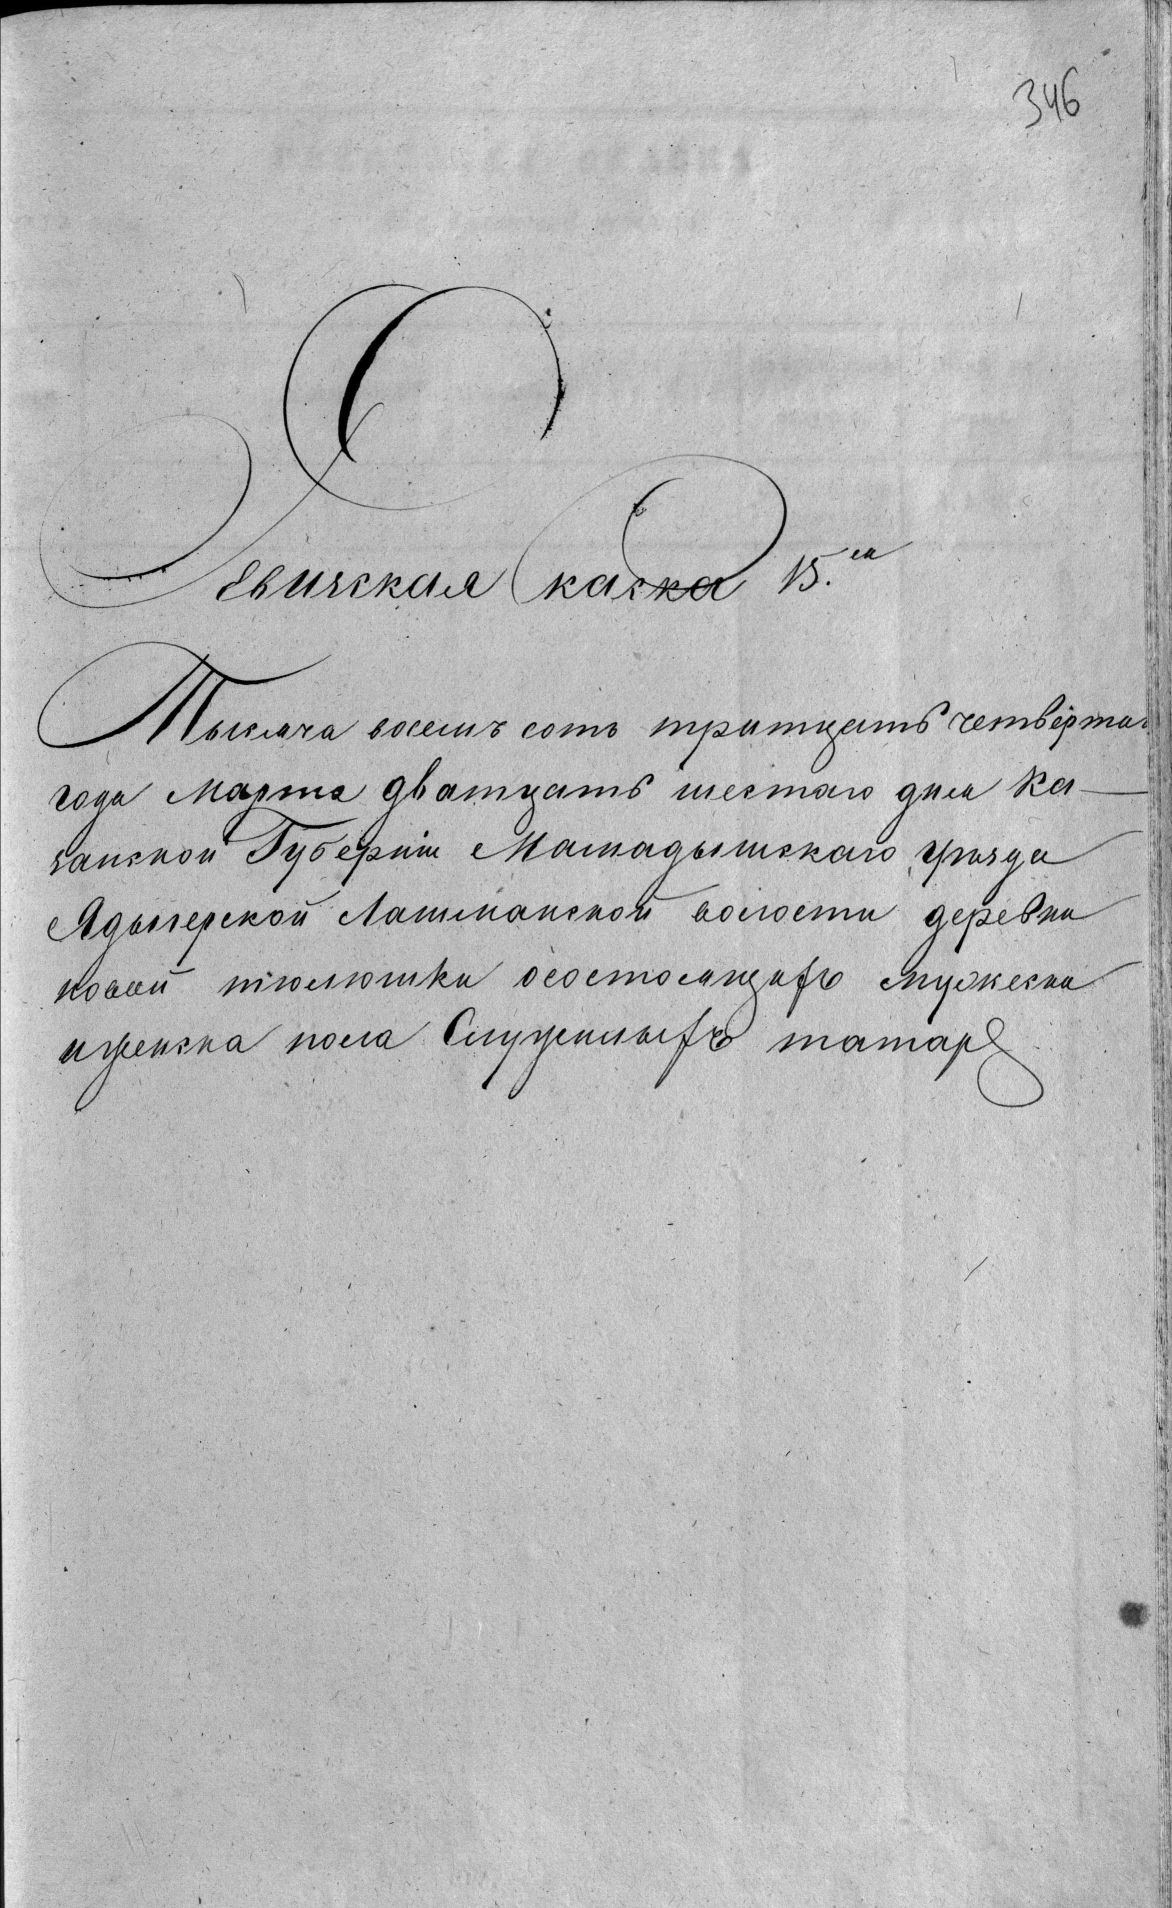 346
Ревизская скаска 15.ая
Тысяча восемъ сотъ тритцать четвертаго
года Марта дватцать шестаго дня Ка—
занской Губерніи Мамадышскаго уѣзда
Адыгерской Лашманской волости деревни
новой тюлюшки осостоящихъ мужеска
иженска пола Служилыхъ татаръ